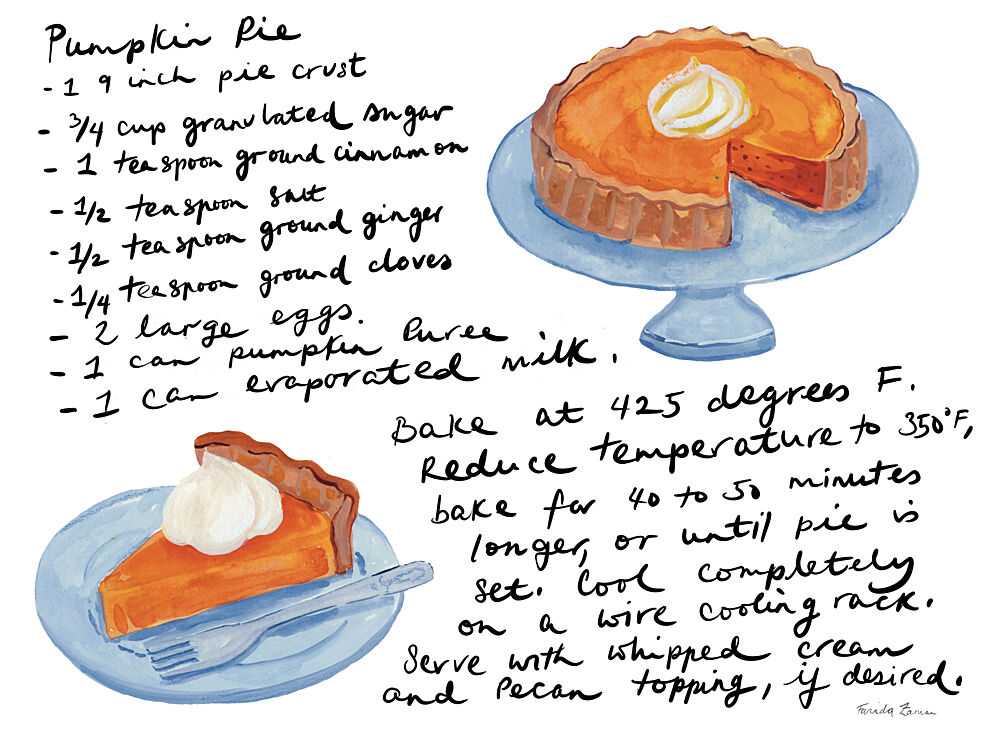 Pumpkin Pie
- 1 9 inch pie crust
- 3/4 cup granulated sugar
- 1 teaspoon ground cinnamon
- 1/2 teaspoon salt
- 1/2 teaspoon ground ginger
- 1/4 teaspoon ground cloves
- 2 large eggs.
- 1 can pumpkin Puree
- 1 can evaporated milk.
Bake at 425 degrees F.
Reduce temperature to 350°F,
bake for 40 to 50 minutes
longer, or until pie is
set. Cool completely
on a wire cooling rack.
Serve with whipped cream
and Pecan topping, if desired.
Farida Zaman